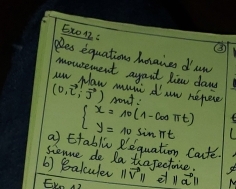 Exo 12 :
③
Les équations horaires d'un
mouvement ayant lieu dans
un plan muni d'un repère
(O, i⃗, j⃗) sont :
{ x = 10(1-cos πt)
y = 10 sin πt
a) Etablir l'équation carté-
sienne de la trajectoire.
b) Calculer ||V⃗|| et ||a⃗||
Exo